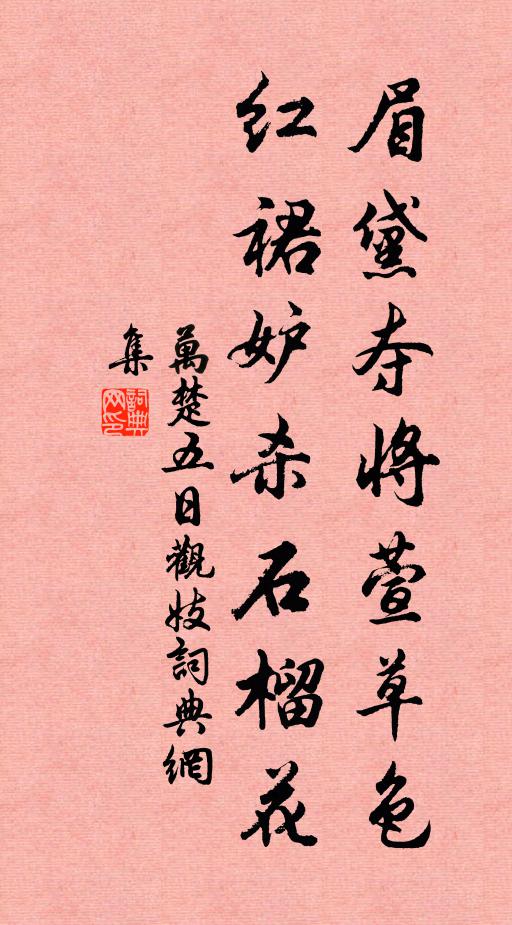 眉黛夺将萱草色
红裙妒杀石榴花
萬楚五日觀妓詞典網
集
詞典网印